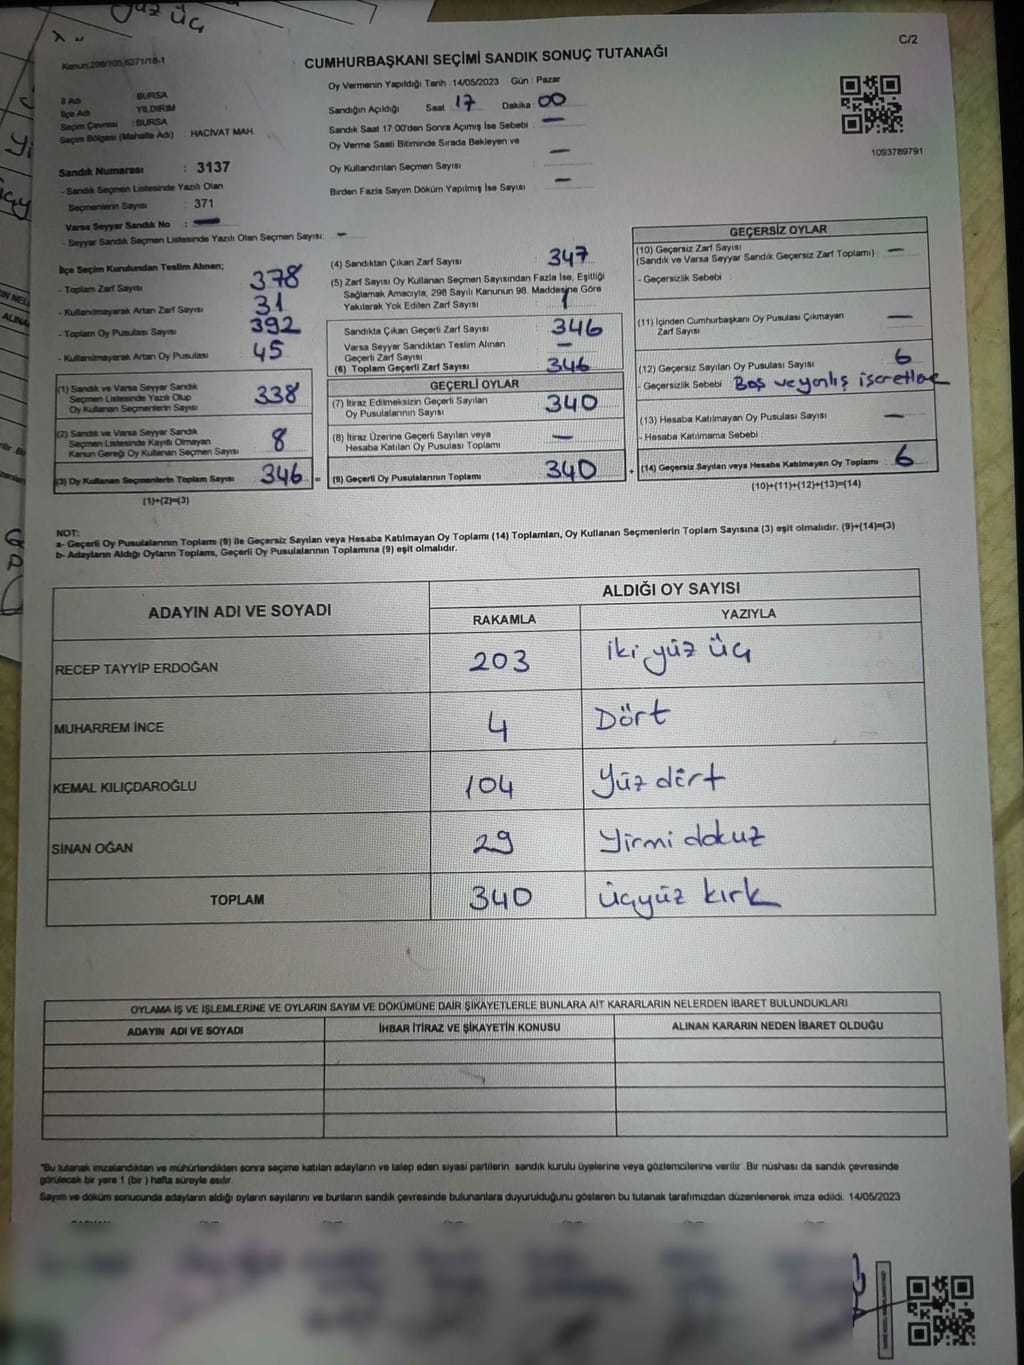 yüz üç
C/2
Kanun:298/105,6271/18-1
CUMHURBAŞKANI SEÇİMİ SANDIK SONUÇ TUTANAĞI
İl Adı : BURSA
İlçe Adı : YILDIRIM
Seçim Çevresi : BURSA
Seçim Bölgesi (Mahalle Adı) : HACİVAT MAH
Sandık Numarası : 3137
- Sandık Seçmen Listesinde Yazılı Olan
Seçmenlerin Sayısı : 371
Varsa Seyyar Sandık No : —
- Seyyar Sandık Seçmen Listesinde Yazılı Olan Seçmen Sayısı: —
Oy Vermenin Yapıldığı Tarih 14/05/2023 Gün : Pazar
Sandığın Açıldığı Saat 17 Dakika 00
Sandık Saat 17 00'den Sonra Açımış İse Sebebi : —
Oy Verme Saati Bitiminde Sırada Bekleyen ve
Oy Kullandırılan Seçmen Sayısı : —
Birden Fazla Sayım Döküm Yapılmış İse Sayısı : —
1093789791
İlçe Seçim Kurulundan Teslim Alınan;
- Toplam Zarf Sayısı 378
- Kullanılmayarak Artan Zarf Sayısı 31
- Toplam Oy Pusulası Sayısı 392
- Kullanılmayarak Artan Oy Pusulası 45
(1) Sandık ve Varsa Seyyar Sandık
Seçmen Listesinde Yazılı Olup
Oy Kullanan Seçmenlerin Sayısı 338
(2) Sandık ve Varsa Seyyar Sandık
Seçmen Listesinde Kayıtlı Olmayan
Kanun Gereği Oy Kullanan Seçmen Sayısı 8
(3) Oy Kullanan Seçmenlerin Toplam Sayısı 346 =
(1)+(2)=(3)
(4) Sandıktan Çıkan Zarf Sayısı 347
(5) Zarf Sayısı Oy Kullanan Seçmen Sayısından Fazla İse, Eşitliği
Sağlamak Amacıyla, 298 Sayılı Kanunun 98. Maddesine Göre
Yakılarak Yok Edilen Zarf Sayısı 1
Sandıkta Çıkan Geçerli Zarf Sayısı 346
Varsa Seyyar Sandıktan Teslim Alınan
Geçerli Zarf Sayısı —
(6) Toplam Geçerli Zarf Sayısı 346
GEÇERLİ OYLAR
(7) İtiraz Edilmeksizin Geçerli Sayılan
Oy Pusulalarının Sayısı 340
(8) İtiraz Üzerine Geçerli Sayılan veya
Hesaba Katılan Oy Pusulası Toplamı —
(9) Geçerli Oy Pusulalarının Toplamı 340 +
GEÇERSİZ OYLAR
(10) Geçersiz Zarf Sayısı
(Sandık ve Varsa Seyyar Sandık Geçersiz Zarf Toplamı) : —
- Geçersizlik Sebebi :
(11) İçinden Cumhurbaşkanı Oy Pusulası Çıkmayan
Zarf Sayısı —
(12) Geçersiz Sayılan Oy Pusulası Sayısı 6
- Geçersizlik Sebebi : Boş ve yanlış işaretler
(13) Hesaba Katılmayan Oy Pusulası Sayısı —
- Hesaba Katılmama Sebebi :
(14) Geçersiz Sayılan veya Hesaba Katılmayan Oy Toplamı 6
(10)+(11)+(12)+(13)=(14)
NOT:
a- Geçerli Oy Pusulalarının Toplamı (9) ile Geçersiz Sayılan veya Hesaba Katılmayan Oy Toplamı (14) Toplamları, Oy Kullanan Seçmenlerin Toplam Sayısına (3) eşit olmalıdır. (9)+(14)=(3)
b- Adayların Aldığı Oyların Toplamı, Geçerli Oy Pusulalarının Toplamına (9) eşit olmalıdır.
ADAYIN ADI VE SOYADI
ALDIĞI OY SAYISI
RAKAMLA YAZIYLA
RECEP TAYYİP ERDOĞAN 203 iki yüz üç
MUHARREM İNCE 4 Dört
KEMAL KILIÇDAROĞLU 104 Yüz dört
SİNAN OĞAN 29 Yirmi dokuz
TOPLAM 340 Üçyüz kırk
OYLAMA İŞ VE İŞLEMLERİNE VE OYLARIN SAYIM VE DÖKÜMÜNE DAİR ŞİKAYETLERLE BUNLARA AİT KARARLARIN NELERDEN İBARET BULUNDUKLARI
ADAYIN ADI VE SOYADI İHBAR İTİRAZ VE ŞİKAYETİN KONUSU ALINAN KARARIN NEDEN İBARET OLDUĞU
*Bu tutanak imzalandıktan ve mühürlendikten sonra seçime katılan adayların ve talep eden siyasi partilerin sandık kurulu üyelerine veya gözlemcilerine verilir. Bir nüshası da sandık çevresinde
görülecek bir yere 1 (bir ) hafta süreyle asılır.
Sayım ve döküm sonucunda adayların aldığı oyların sayılarını ve bunların sandık çevresinde bulunanlara duyurulduğunu gösteren bu tutanak tarafımızdan düzenlenerek imza edildi. 14/05/2023